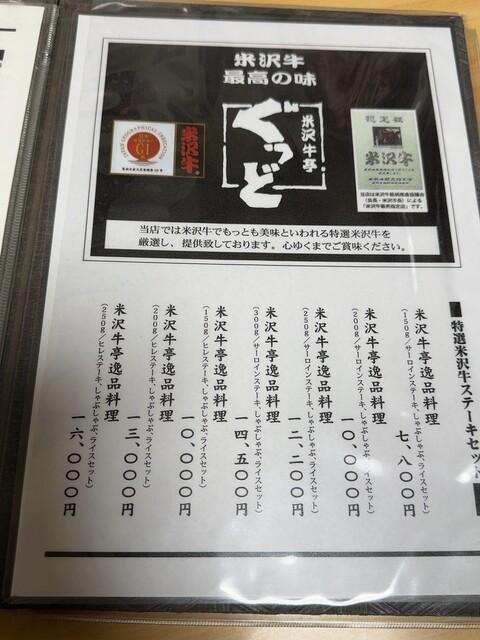 米沢牛
最高の味
米沢牛亭
ぐっど
JAPAN GEOGRAPHICAL INDICATION
GI
米沢牛
認定証
米沢牛
当店は米沢牛銘柄推進協議会
(会長・米沢市長)による
「米沢牛販売指定店」です。
当店では米沢牛でもっとも美味といわれる特選米沢牛を
厳選し、提供致しております。心ゆくまでご賞味ください。
特選米沢牛ステーキセット
米沢牛亭逸品料理
(150g/サーロインステーキ、しゃぶしゃぶ、ライスセット)
七、八〇〇円
米沢牛亭逸品料理
(200g/サーロインステーキ、しゃぶしゃぶ、ライスセット)
一〇、〇〇〇円
米沢牛亭逸品料理
(250g/サーロインステーキ、しゃぶしゃぶ、ライスセット)
一二、二〇〇円
米沢牛亭逸品料理
(300g/サーロインステーキ、しゃぶしゃぶ、ライスセット)
一四、五〇〇円
米沢牛亭逸品料理
(150g/ヒレステーキ、しゃぶしゃぶ、ライスセット)
一〇、〇〇〇円
米沢牛亭逸品料理
(200g/ヒレステーキ、しゃぶしゃぶ、ライスセット)
一三、〇〇〇円
米沢牛亭逸品料理
(250g/ヒレステーキ、しゃぶしゃぶ、ライスセット)
一六、〇〇〇円